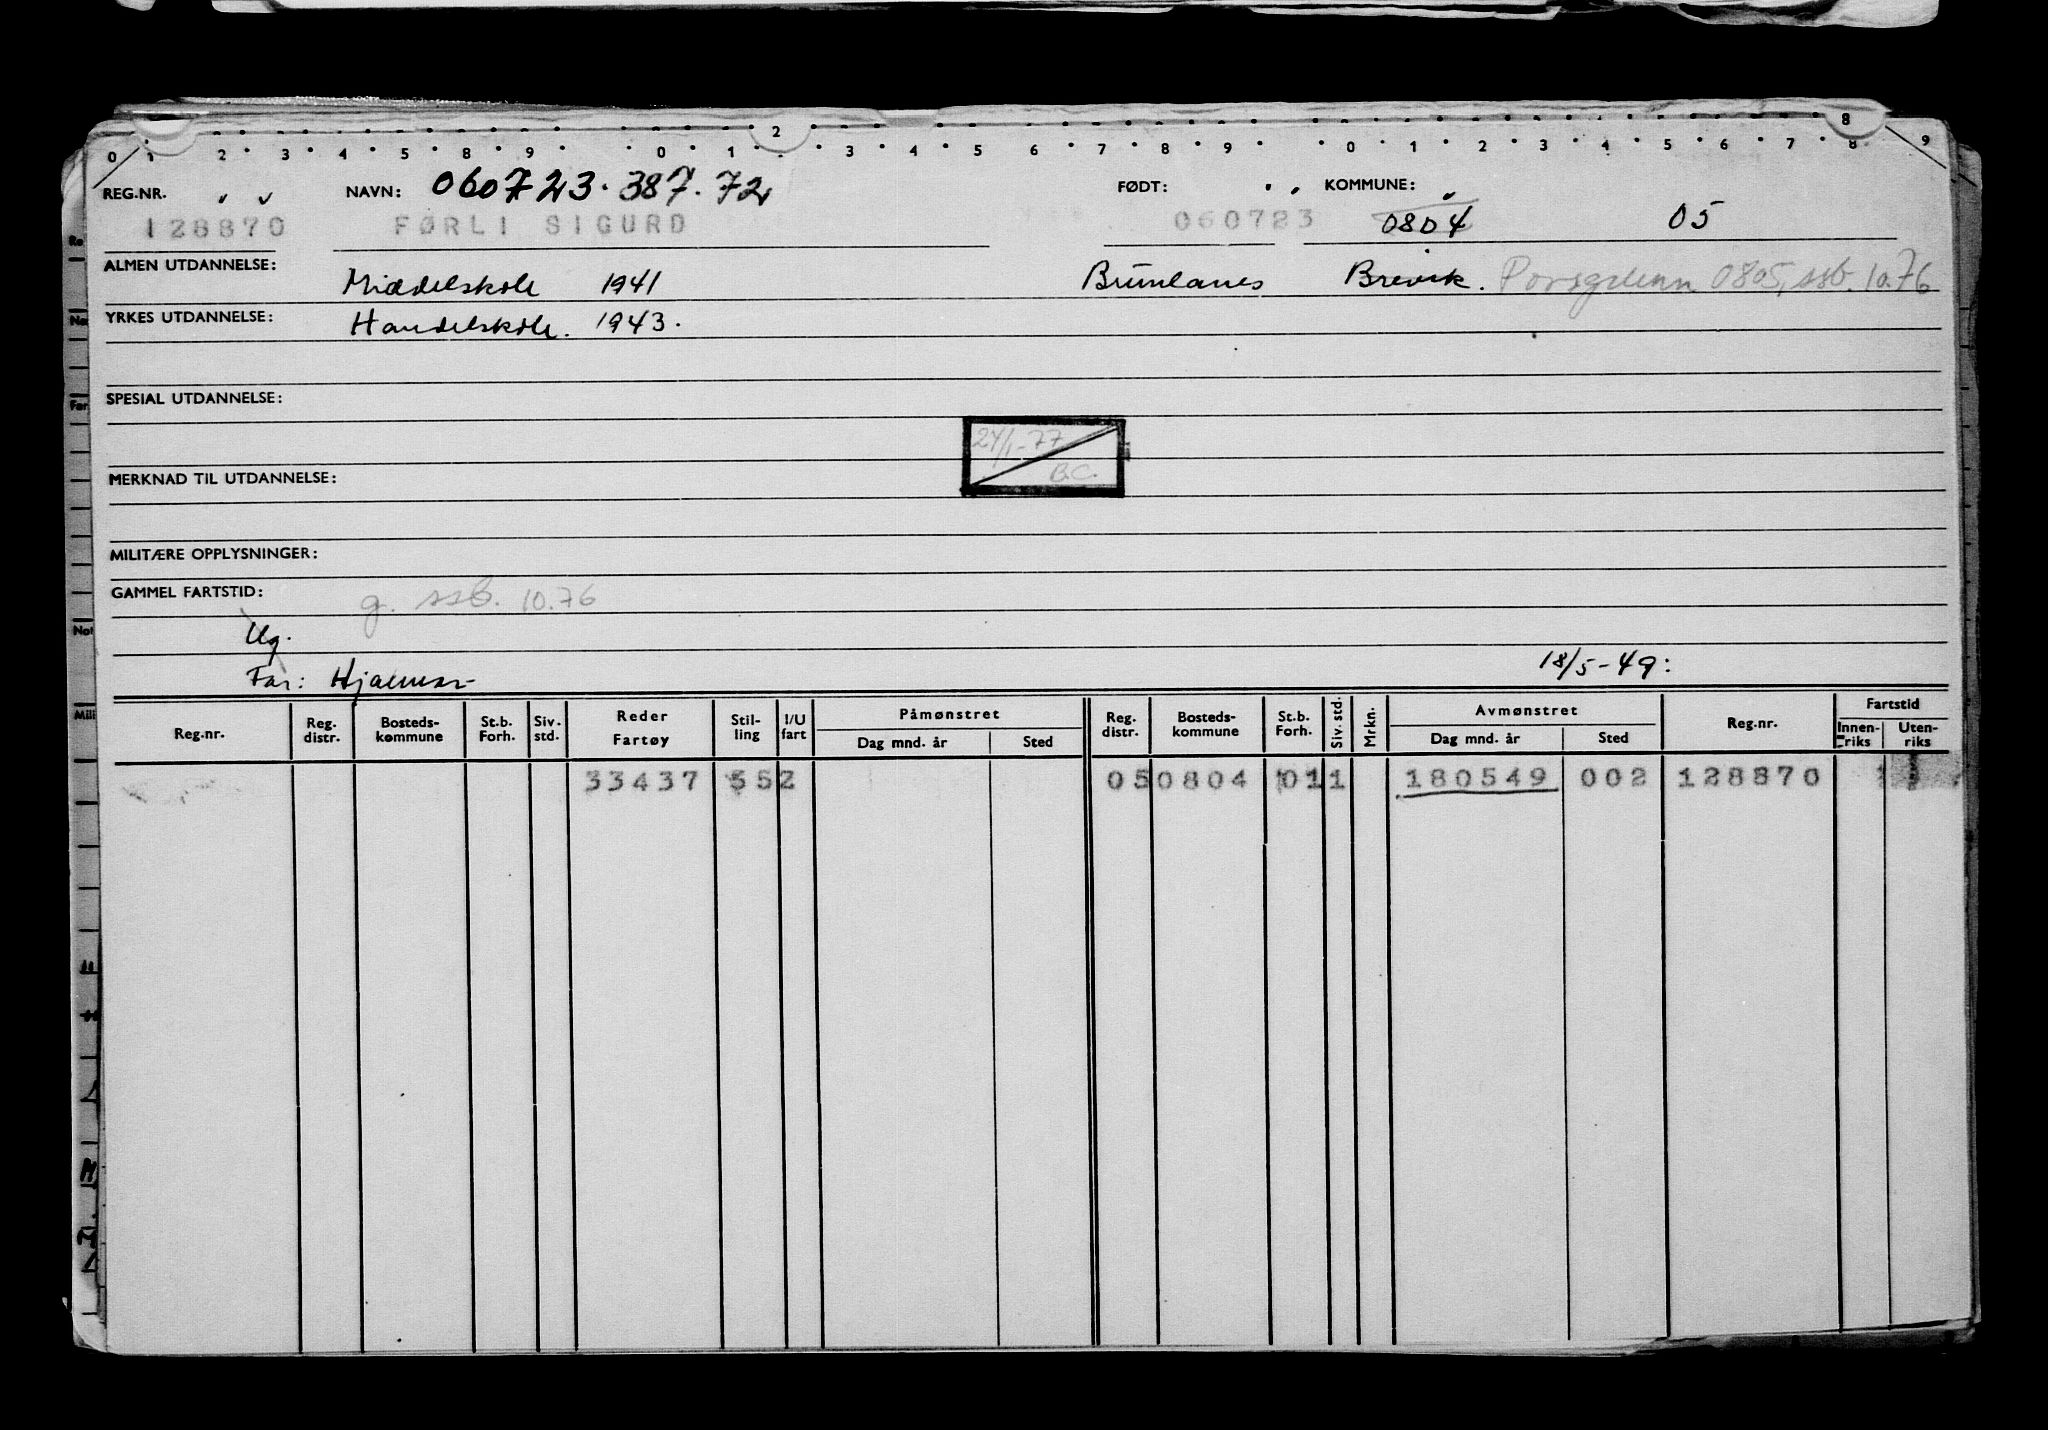 0 1 2 3 4 5 6 7 8 9 0 1 2 3 4 5 6 7 8 9 0 1 2 3 4 5 6 7 8 9
REG.NR. NAVN: 060723.387.72 FØDT: KOMMUNE:
128870 FØRLI SIGURD 060723 0804 05
ALMEN UTDANNELSE: Middelskole 1941 Brunlanes Brevik. Porsgrunn 0805, ssb. 10.76
YRKES UTDANNELSE: Handelskole. 1943.
SPESIAL UTDANNELSE:
24/1-77
B.C.
MERKNAD TIL UTDANNELSE:
MILITÆRE OPPLYSNINGER:
GAMMEL FARTSTID: g. ssb. 10.76
Ug.
Far: Hjalmar 18/5-49:
Reg.nr. Reg. distr. Bosteds- kommune St.b. Forh. Siv. std. Reder Fartøy Stil- ling I/U fart Påmønstret Dag mnd. år Sted Reg. distr. Bosteds- kommune St.b. Forh. Siv. std. Mrkn. Avmønstret Dag mnd. år Sted Reg.nr. Fartstid Innen- riks Uten- riks
33437 552 050804 011 180549 002 128870